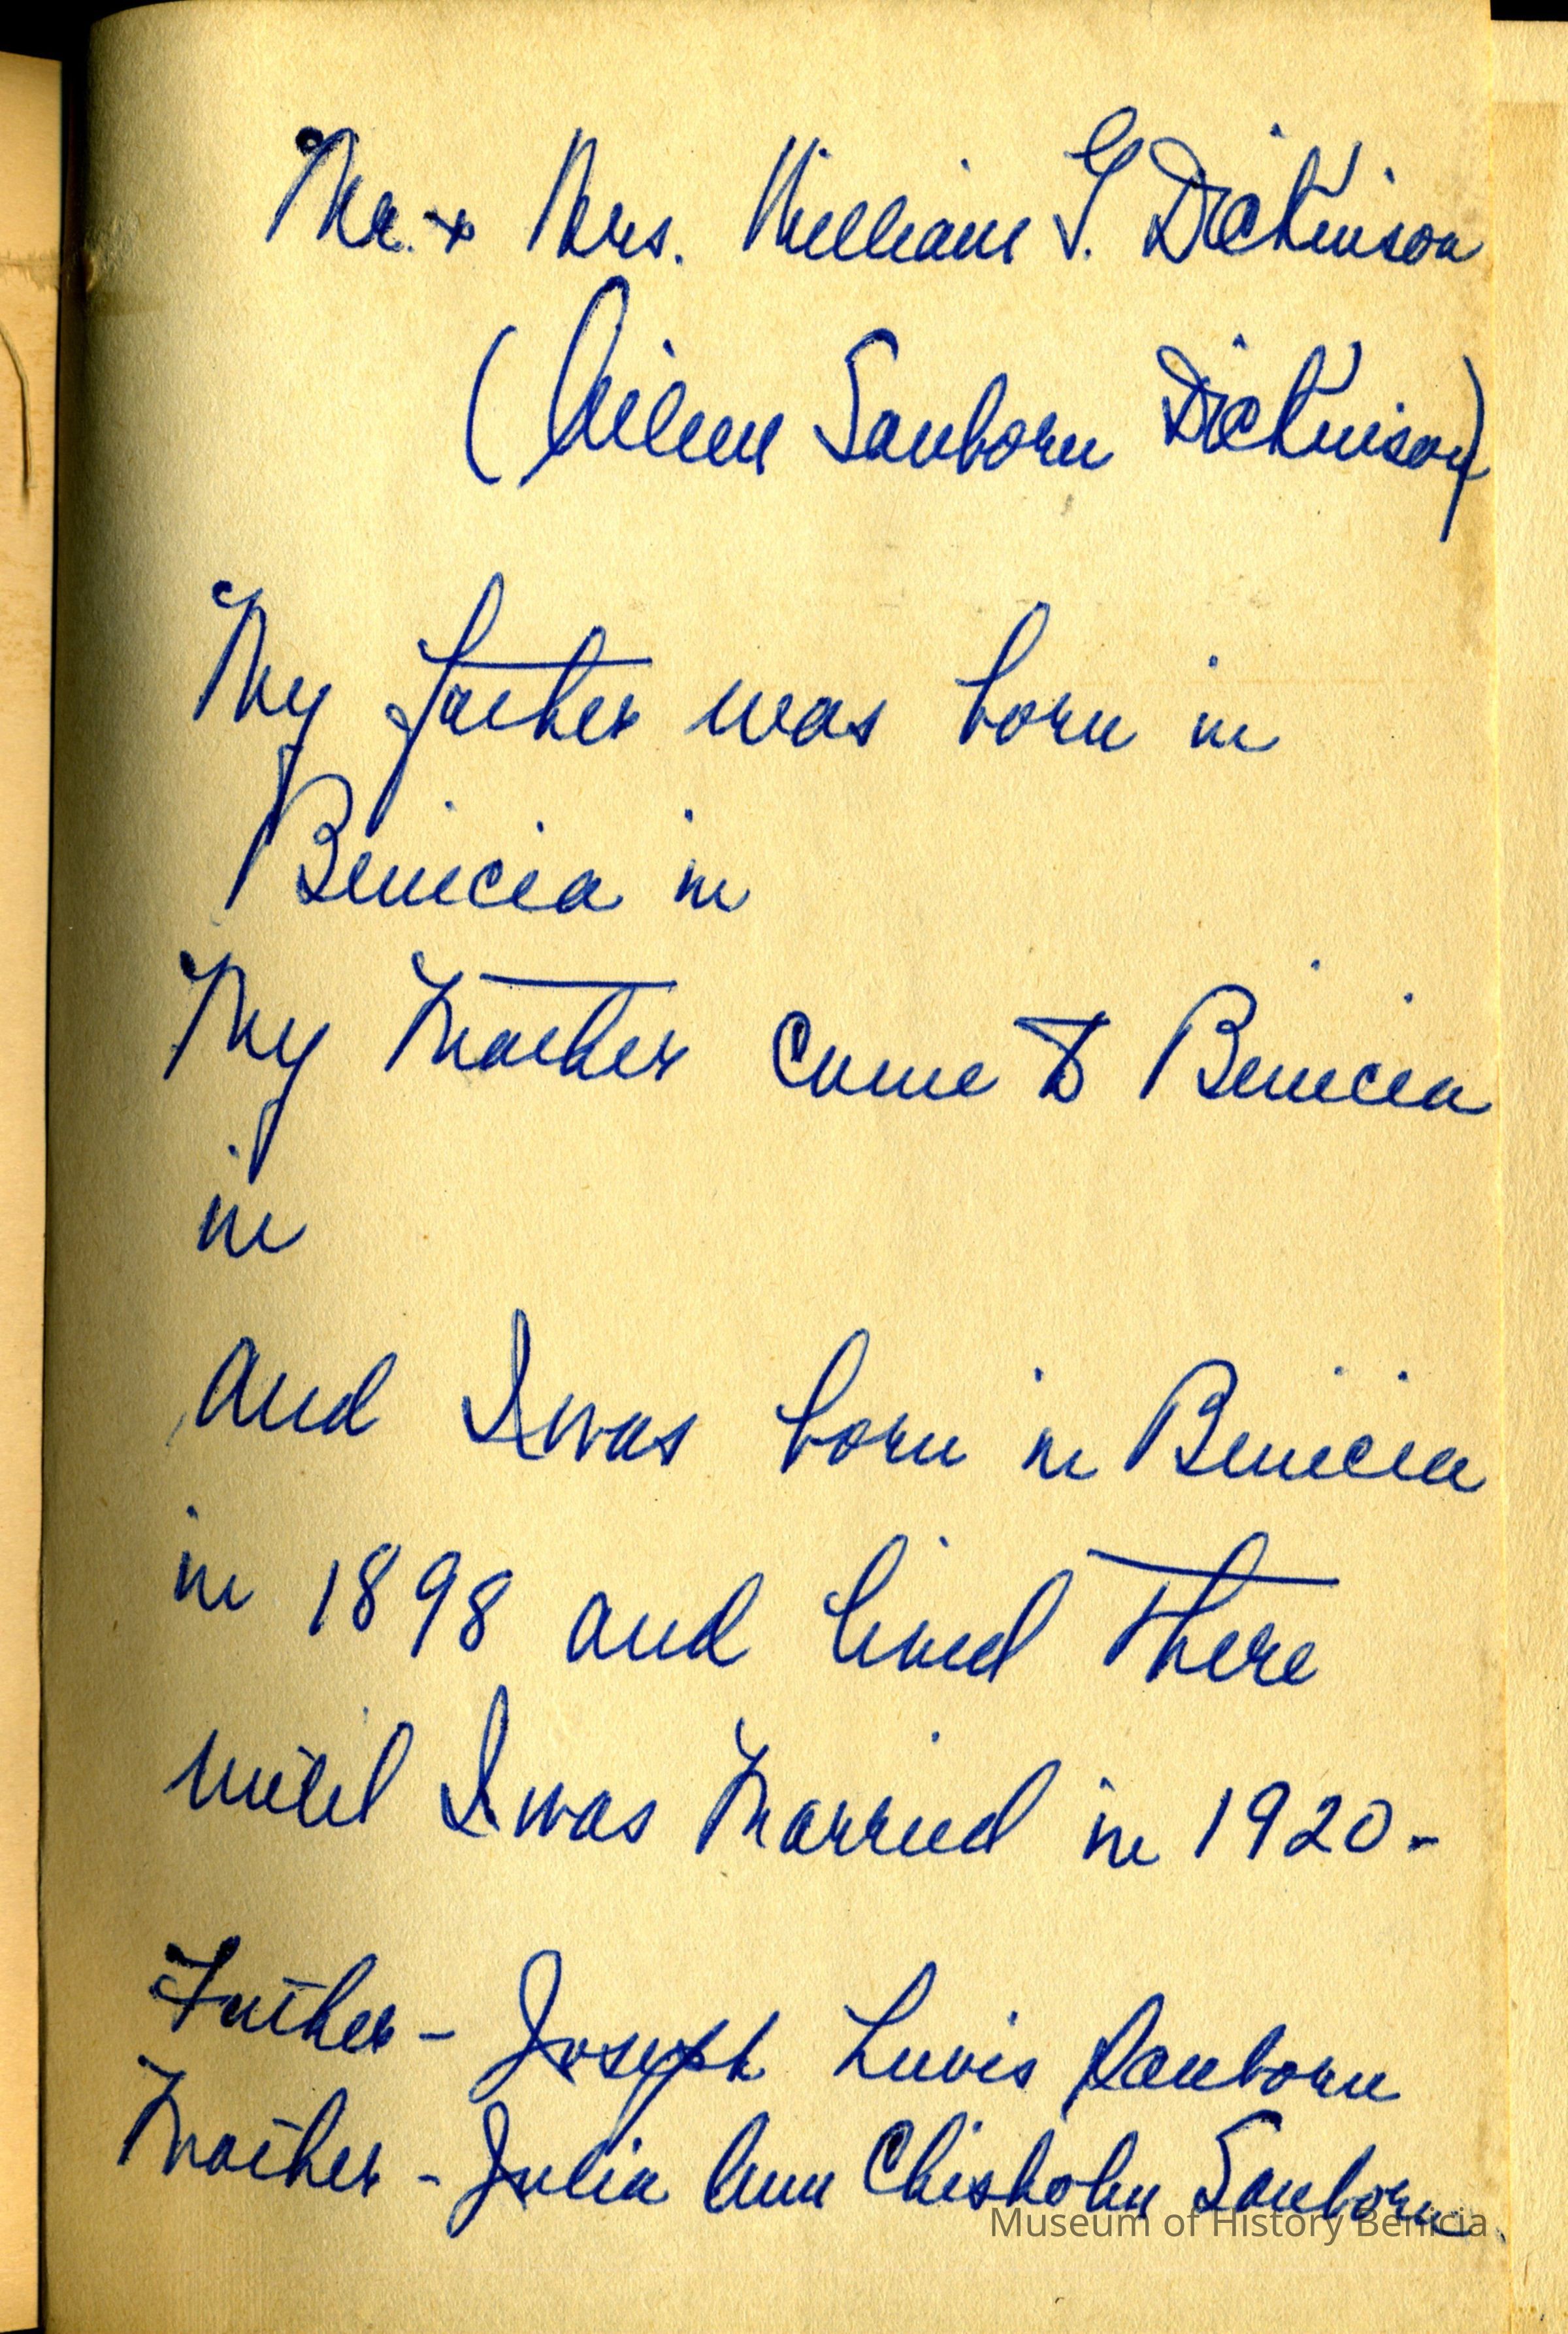 Mr. + Mrs. William G. Dickinson
(Aileen Sanborn Dickinson)
My father was born in
Benicia in
My Mother came to Benicia
in
and I was born in Benicia
in 1898 and lived there
until I was Married in 1920-
Father - Joseph Lewis Sanborn
Mother - Julia Ann Chisholm Sanborn
Museum of History Benicia